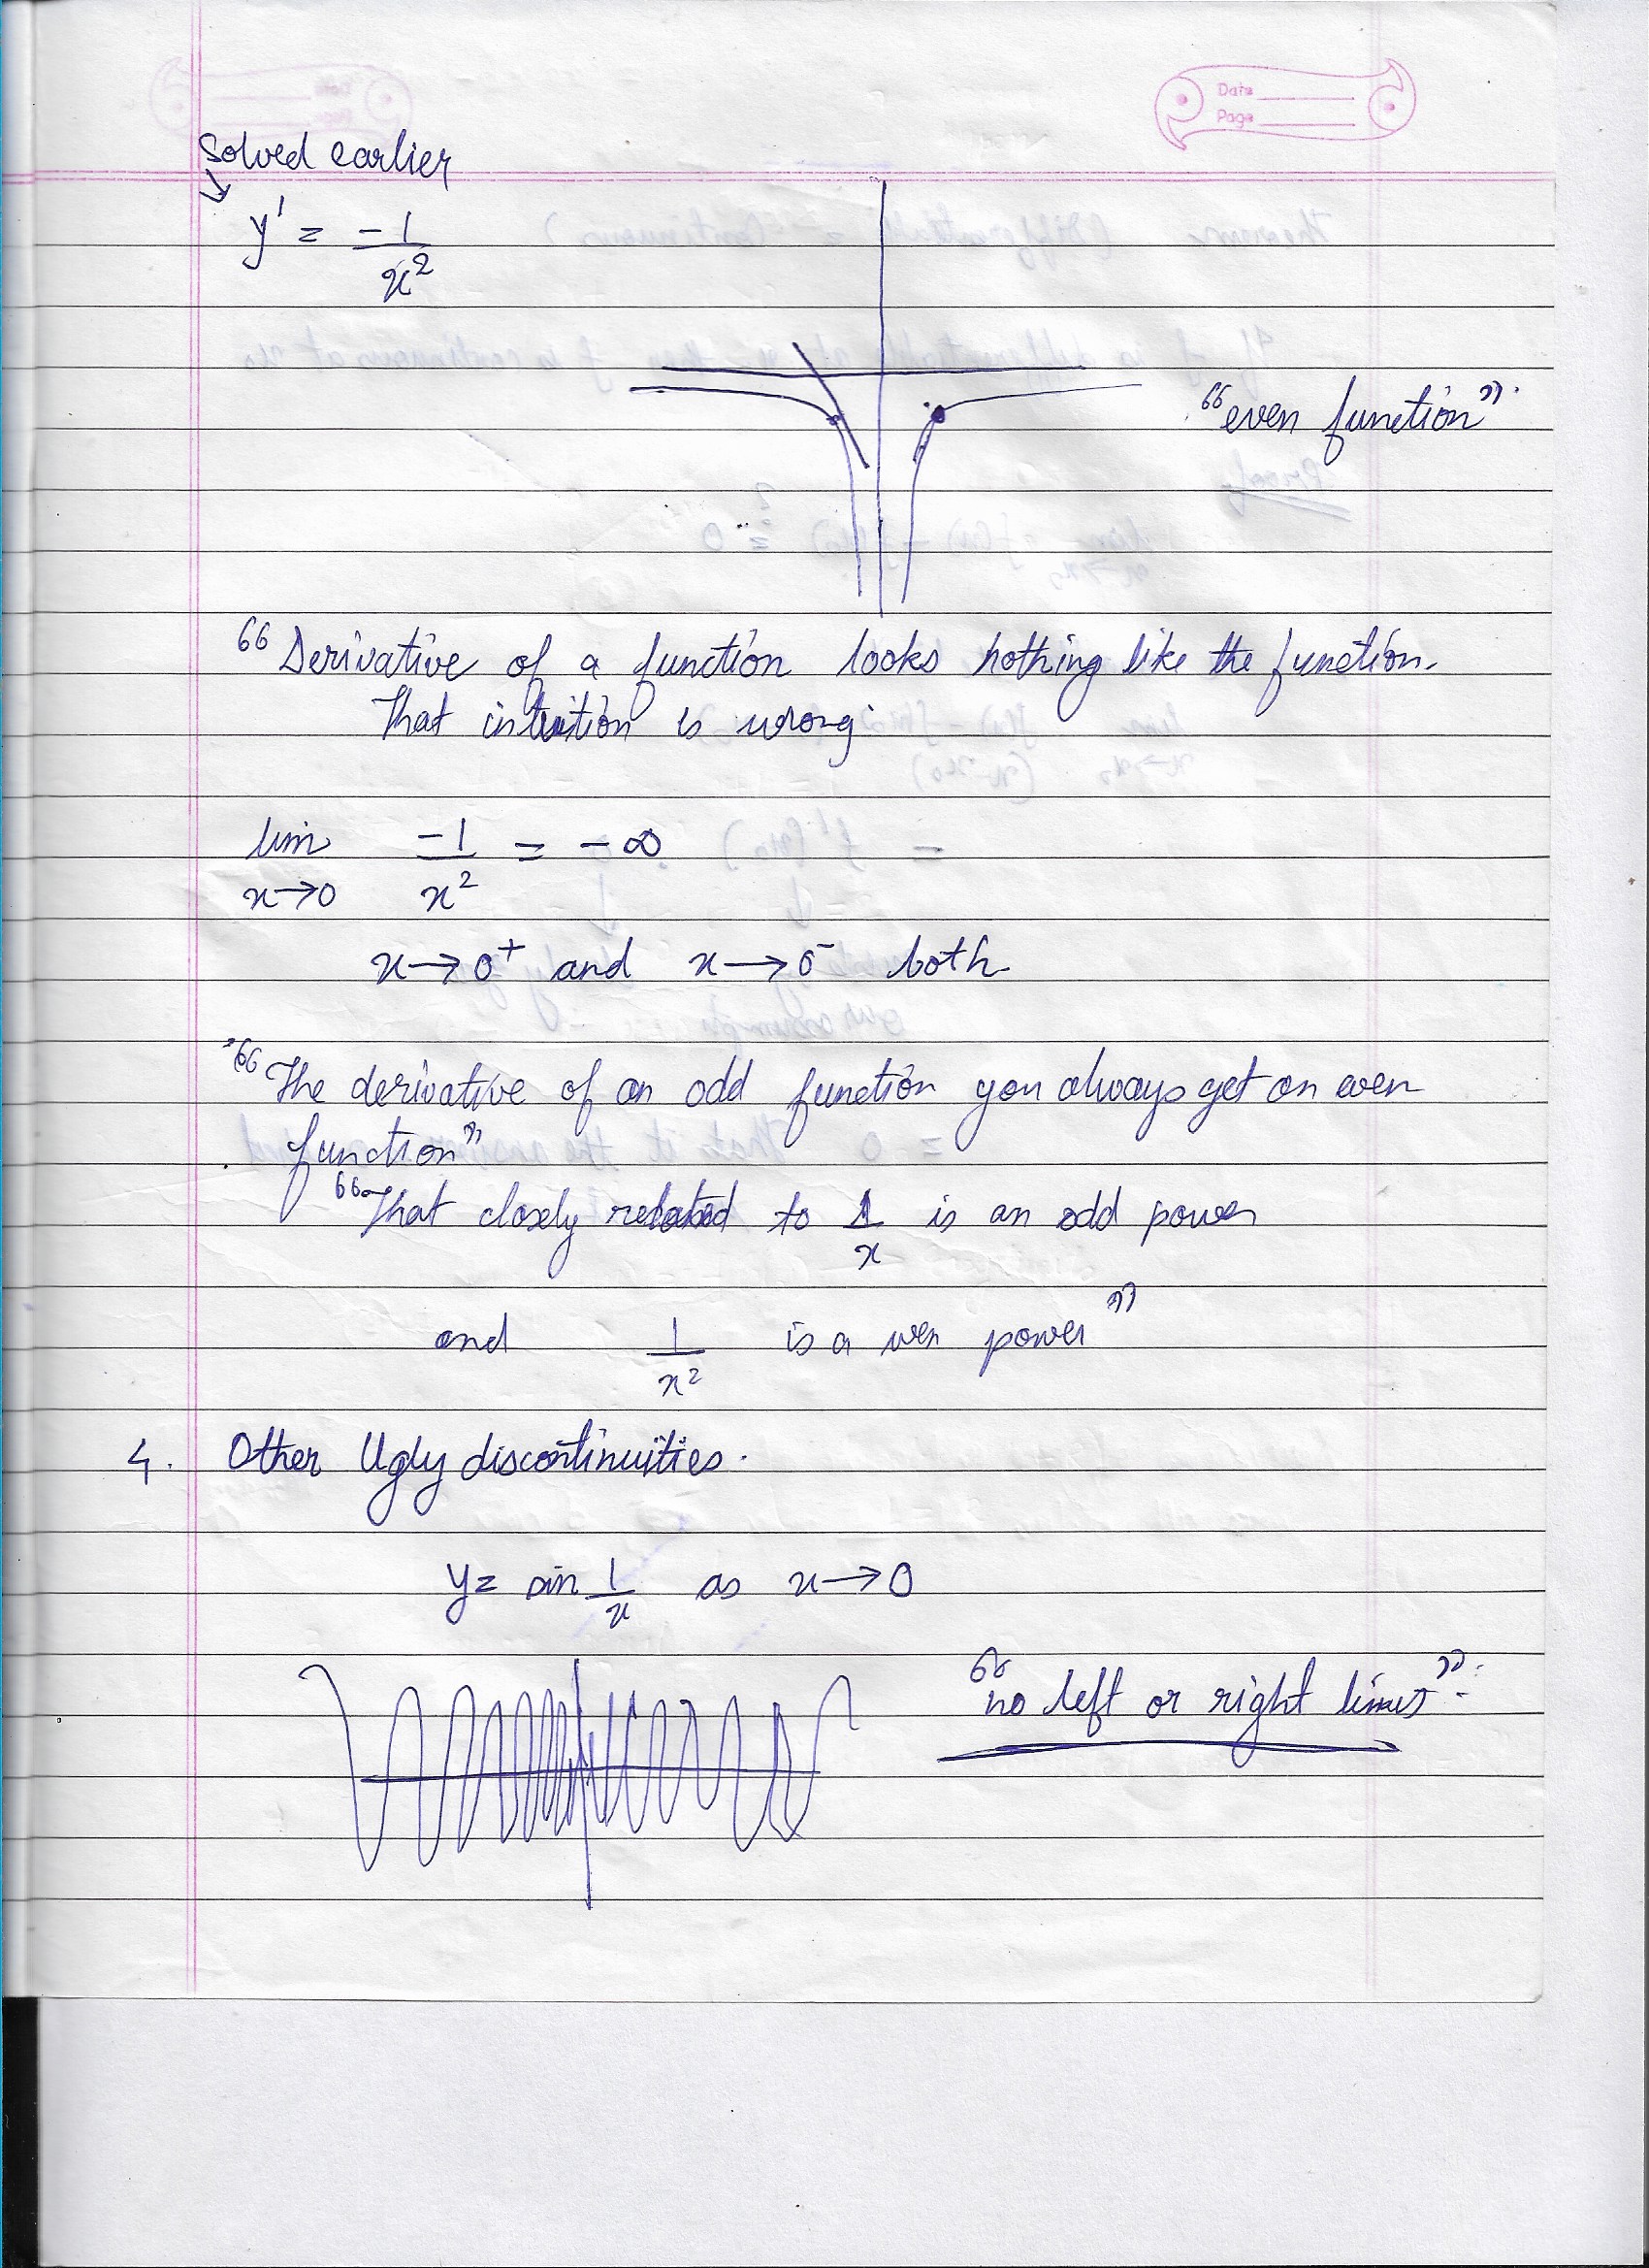 Date
Page
Solved earlier
↓
y' = -1/x²
"even function".
"Derivative of a function looks nothing like the function.
That intuition is wrong.
lim x→0 -1/x² = -∞
x→0⁺ and x→0⁻ both
"The derivative of an odd function you always get an even
function"
"That closely related to 1/x is an odd power
and 1/x² is a even power"
4. Other Ugly discontinuities.
y = sin 1/x as x→0
"no left or right limits".